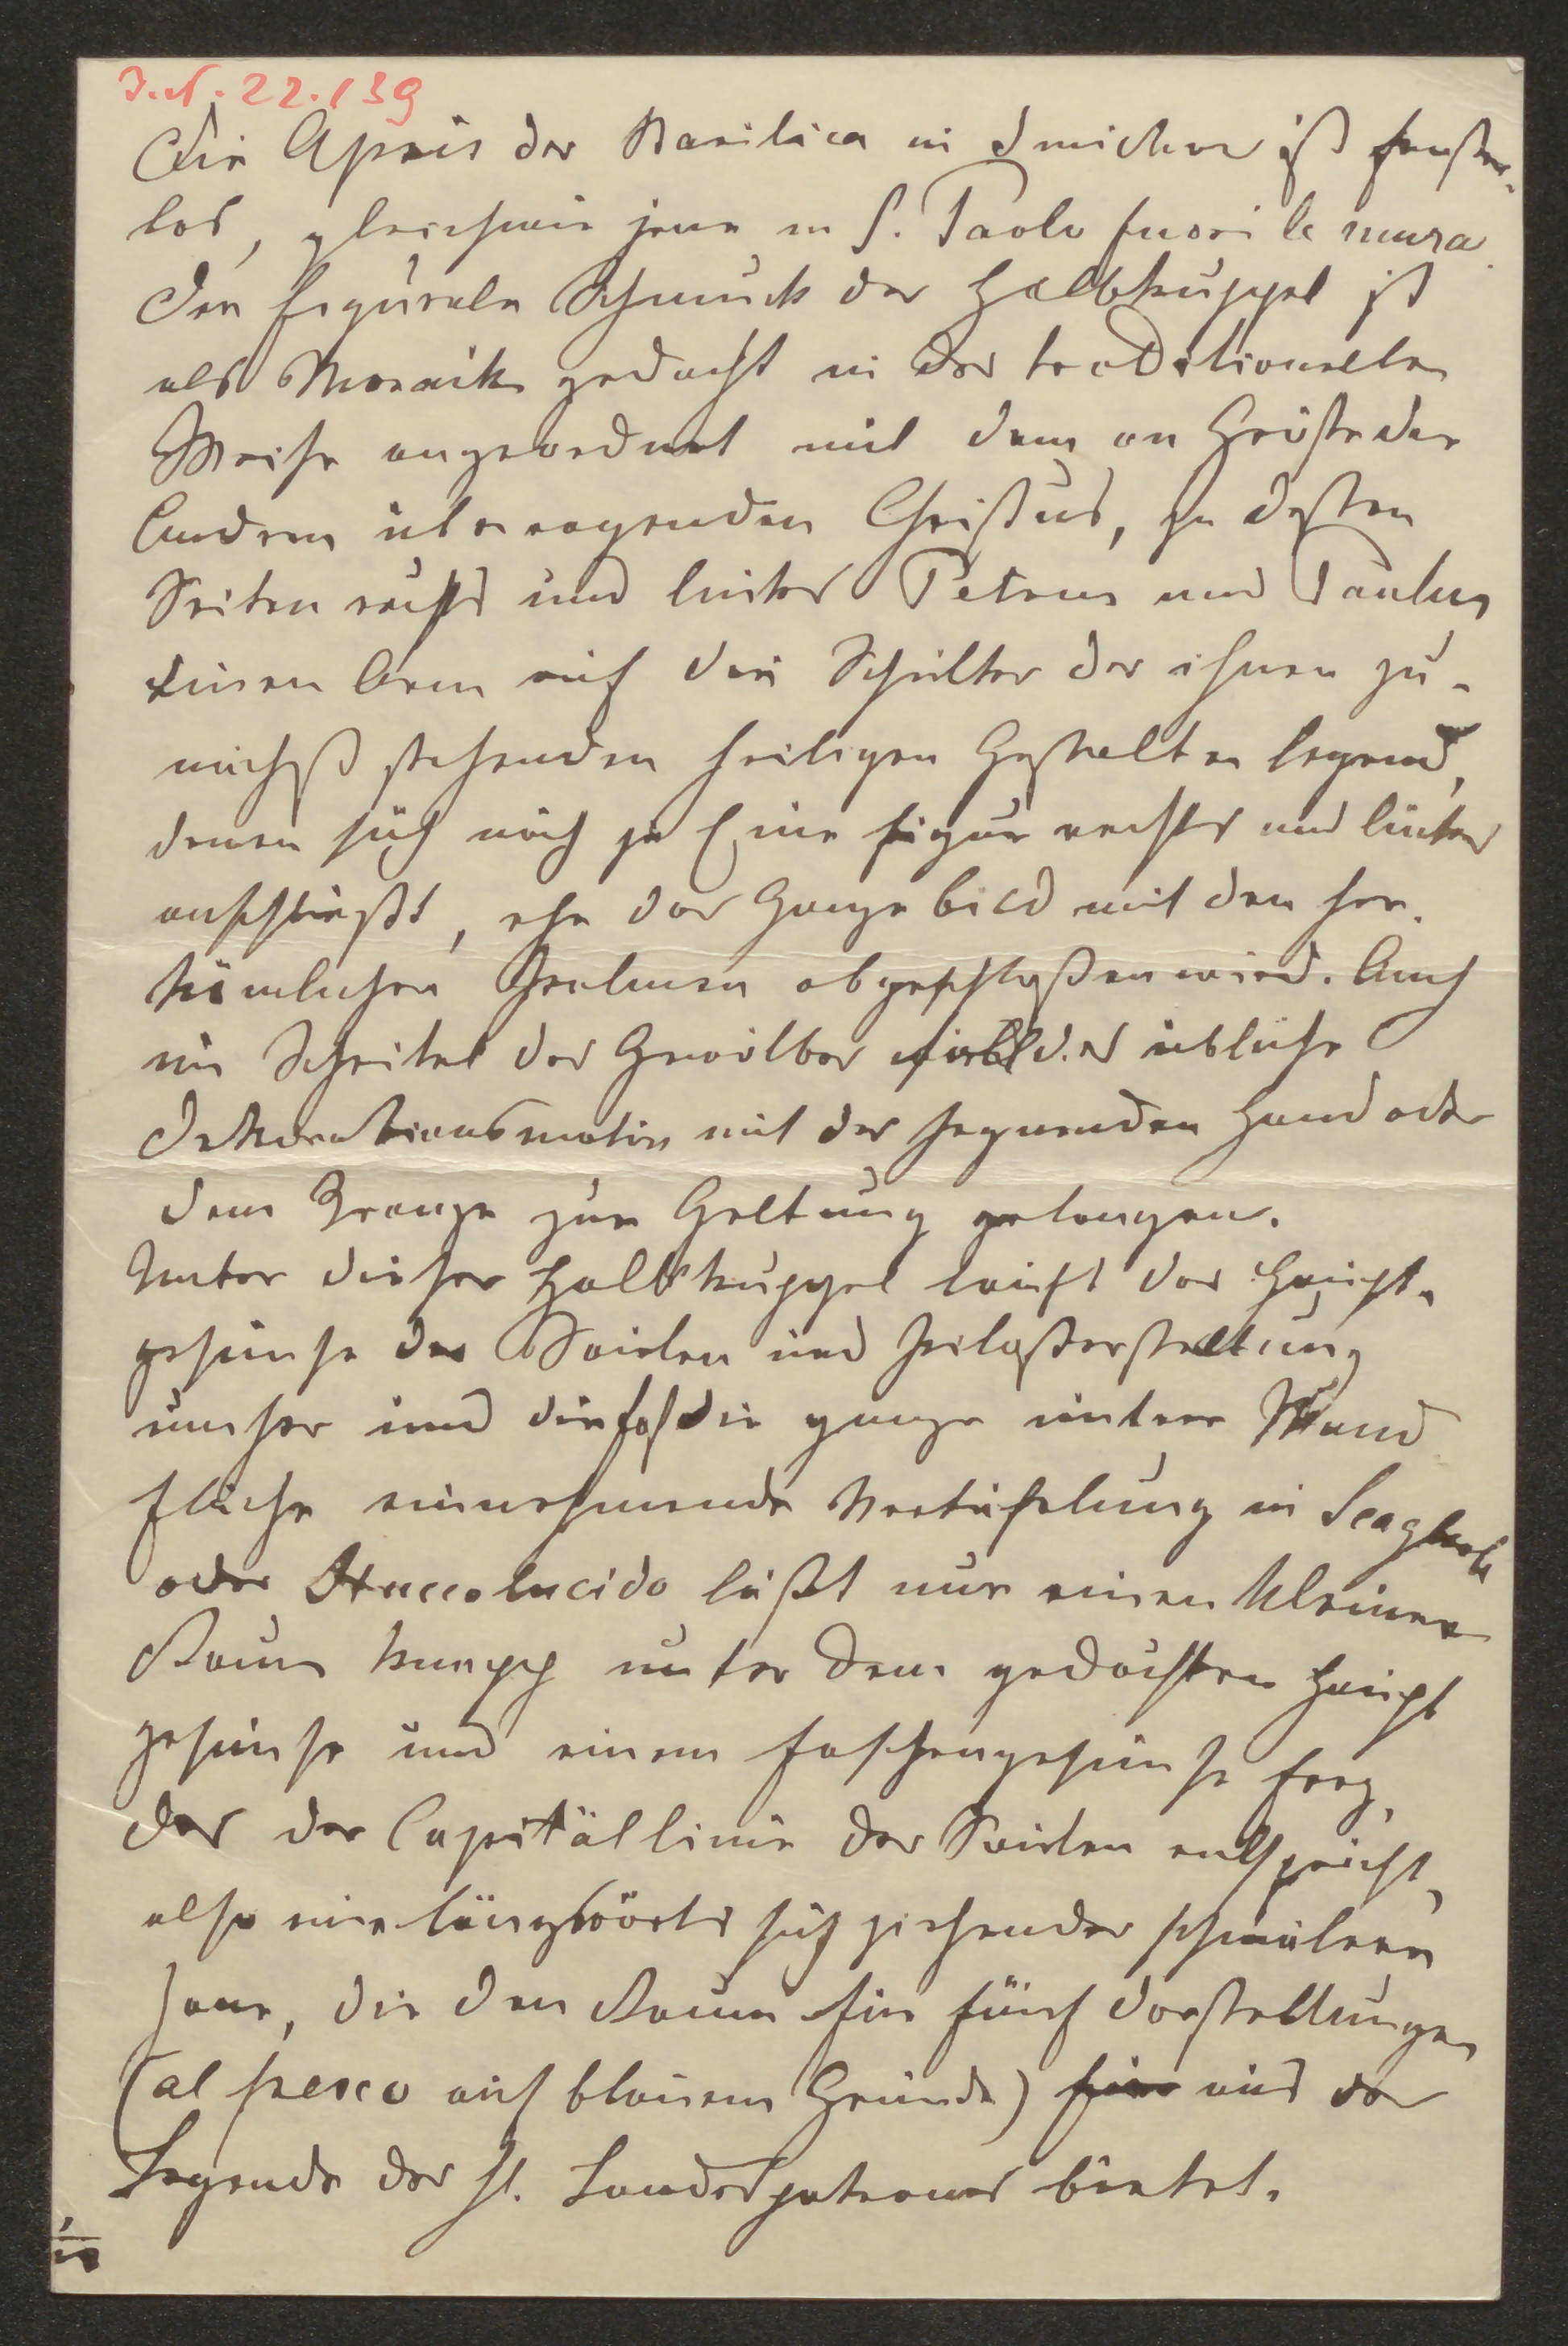 I.N. 22.139
Die Apsis der Basilica in Smichow ist fenster-
los, gleichwie jene in S. Paolo fuori le mura.
Der figurale Schmuck der Halbkuppel ist
als Mosaik gedacht in der traditionellen
Weise angeordnet mit dem an Größe die
Andern überragenden Christus, zu dessen
Seiten rechts und links Petrus und Paulus
einen Arm auf die Schulter der ihnen zu-
nächst stehenden heiligen Gestalten legend,
denen sich noch je Eine Figur rechts und links
anschließt, ehe das Ganze bild mit den her-
kömlichen Palmen abgeschloßen wird. Auch
im Scheitel des Gewölbes soll das übliche
Dekorationsmotiv mit der segnenden Hand oder
dem Kreuze zur Geltung gelangen.
Unter dieser Halbkuppel lauft das Haupt-
gesimse der Säulen und Pilasterstellung
umher und die fast die ganze untere Wand
fläche einnehmende Vertäfelung in Scagliola
oder Stuccolucido läßt nur einen kleinen
Raum knapp unter dem gedachten Haupt
gesimse und einem flachen gesimse frei,
das der Capitällinie der Säulen entspricht,
also eine längswärts sich ziehender schmälere
Zone, die den Raum für fünf Darstellungen
(al fresco auf blauem Grunde) aus der
Legende der hl. Landespatrone bietet.